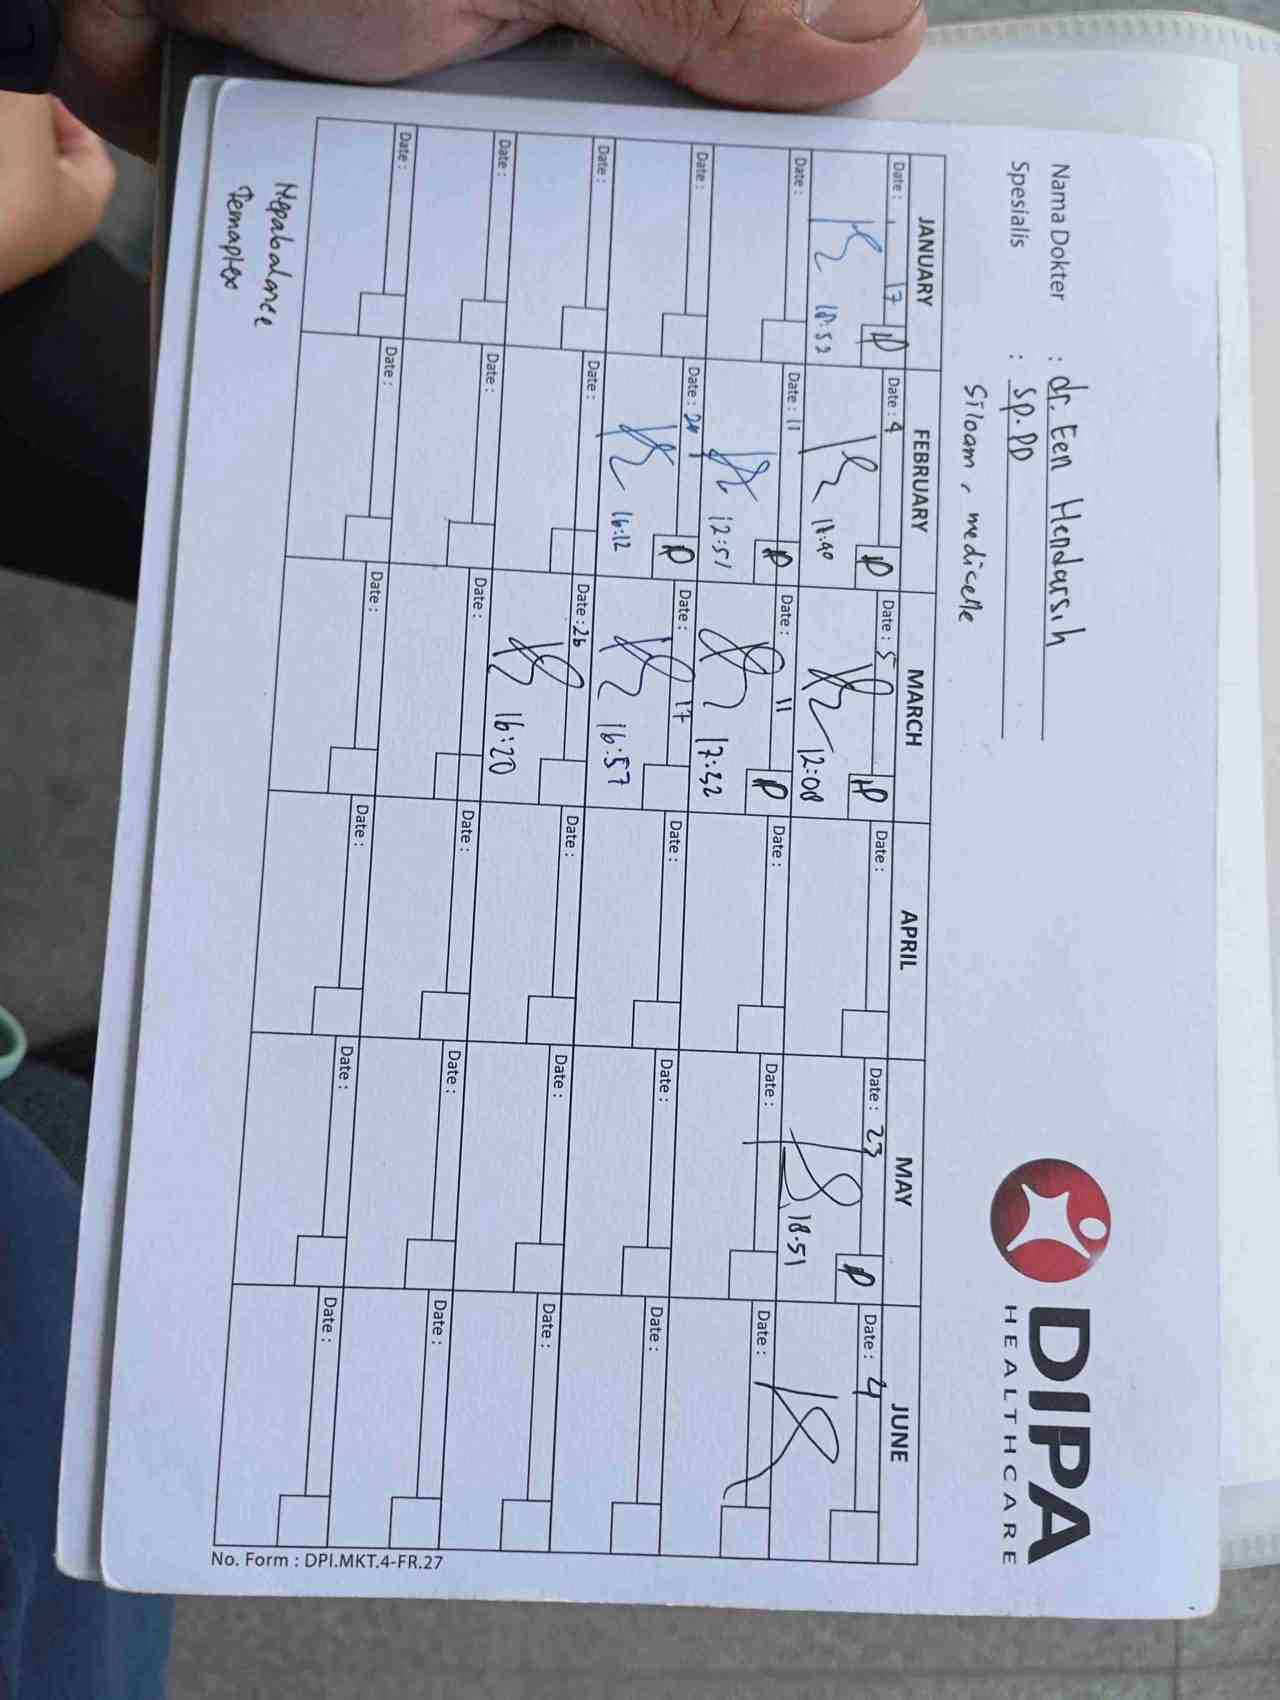 Nama Dokter : dr. Een Hendarsih
Spesialis : Sp.PD
Siloam, medicelle
DIPA
HEALTHCARE
JANUARY FEBRUARY MARCH APRIL MAY JUNE
Date: 17 Date: 4 Date: 5 Date: Date: 23 Date: 4
18:52 18:40 12:08 18.51
Date: Date: 11 Date: 11 Date: Date: Date:
12:51 17:32
Date: Date: 24 Date: 17 Date: Date: Date:
16:12 16:57
Date: Date: Date: 26 Date: Date: Date:
16:20
Date: Date: Date: Date: Date: Date:
Date: Date: Date: Date: Date: Date:
Hepabalance
Temaplex
No. Form : DPI.MKT.4-FR.27